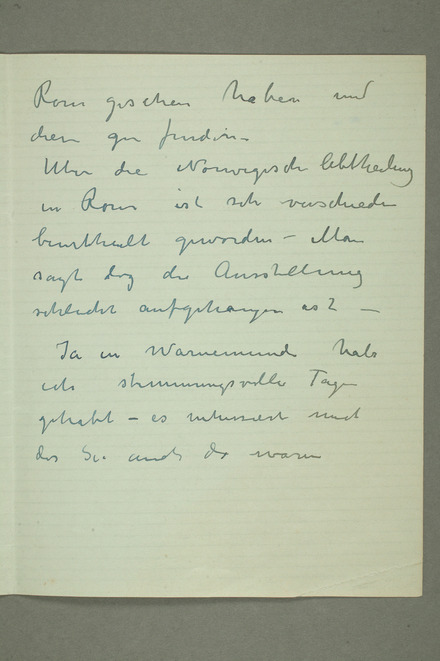 Rom gesehen haben und
dem gu finden –
Uber die Norwegische Abtheilung
in Rom ist sehr verschieden
beurtheilt geworden – Man
sagt das die Ausstellung
schlecht aufgehangen ist –
Ja in Warnemunde habe
ich stimmungsvolle Tage
gehabt – es interessiert mich
das Sie auch da waren